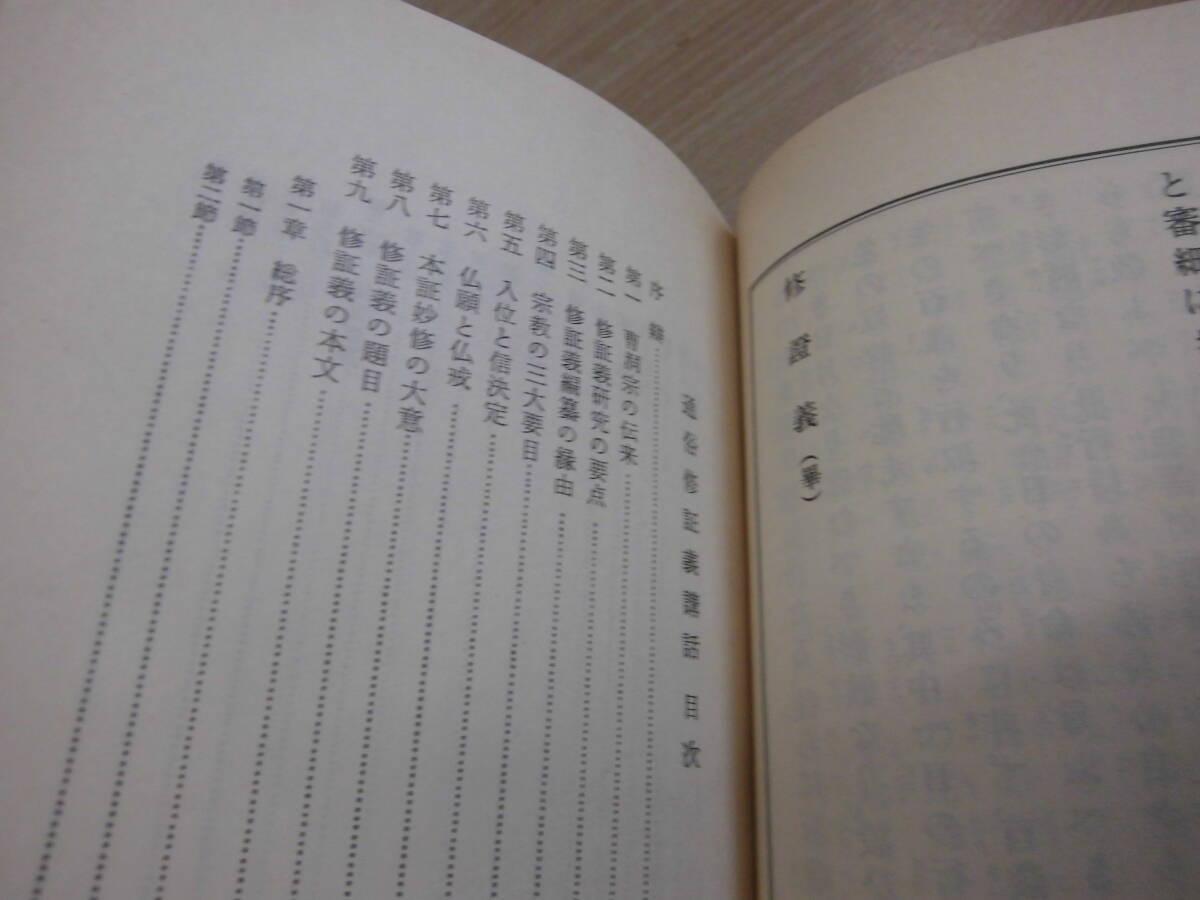 と審細に
修證義(畢)
通俗修証義講話 目次
序
第一 曹洞宗の伝来
第二 修証義研究の要点
第三 修証義編纂の縁由
第四 宗教の三大要目
第五 入位と信決定
第六 仏願と仏戒
第七 本証妙修の大意
第八 修証義の題目
第九 修証義の本文
第一章 総序
第一節
第二節